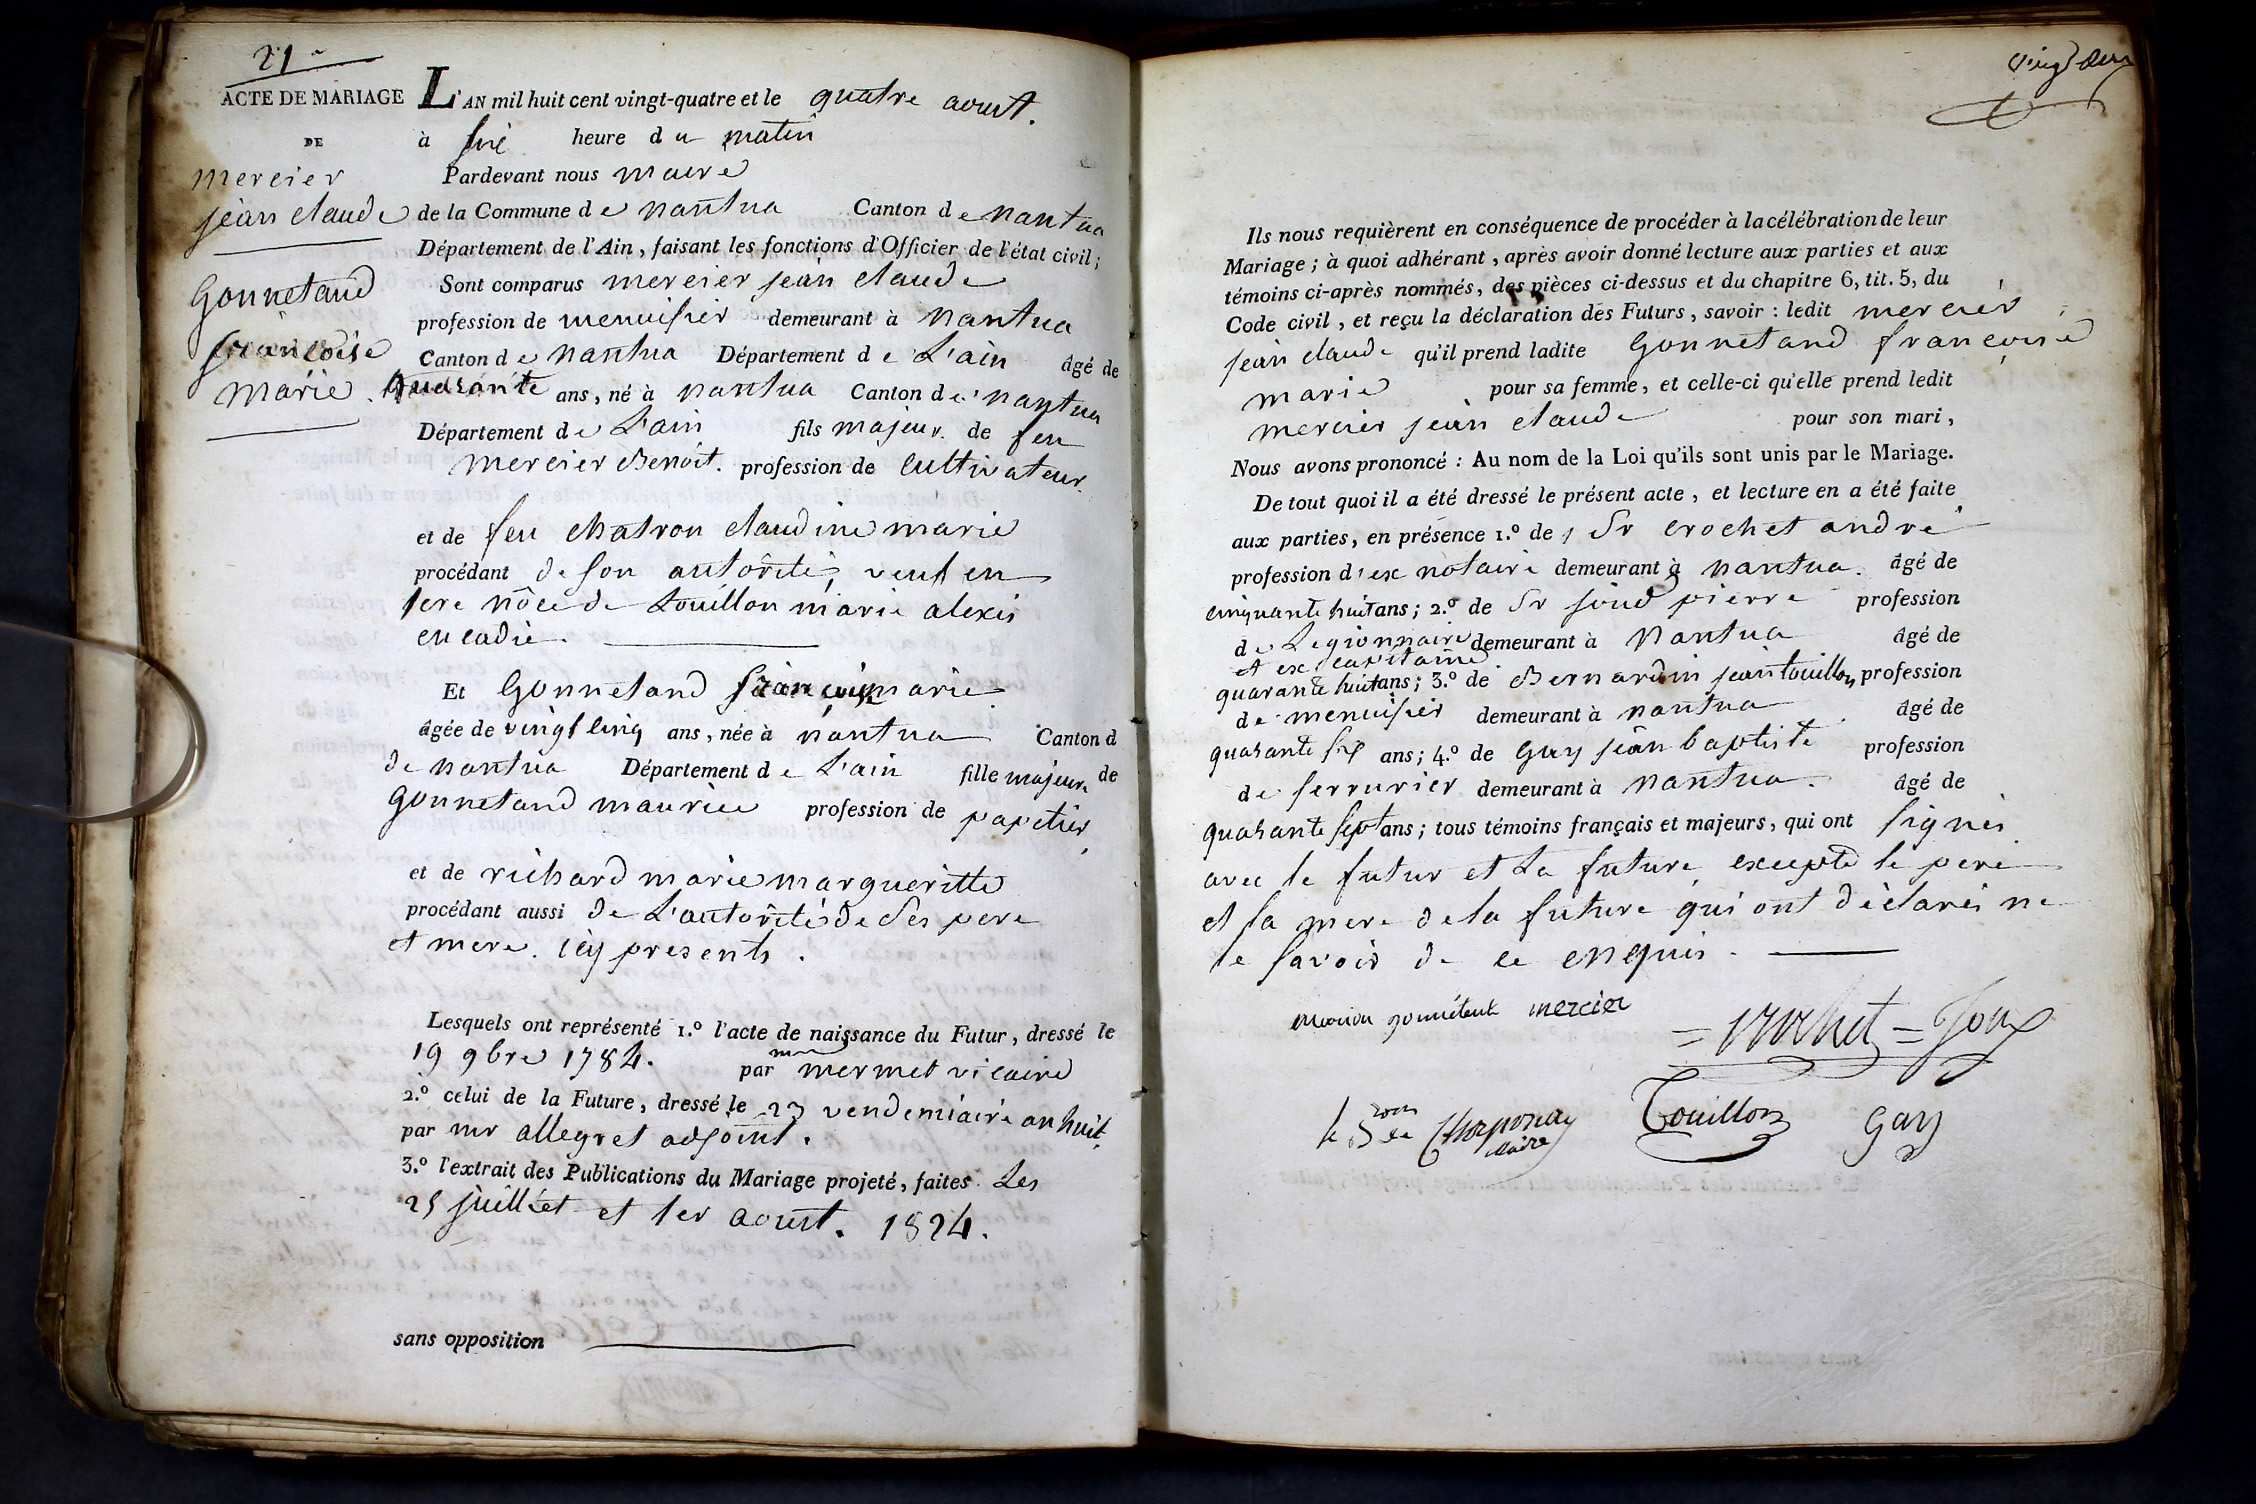 21
ACTE DE MARIAGE
DE
mercier
jean claude
Gonnetand
françoise
marie.
L'AN mil huit cent vingt-quatre et le quatre aoust.
à six heure du matin
Pardevant nous maire
de la Commune de nantua Canton de nantua
Département de l'Ain, faisant les fonctions d'Officier de l'état civil;
Sont comparus mercier jean claude
profession de menuisier demeurant à nantua
Canton de nantua Département de L'ain âgé de
quarante ans, né à nantua Canton de nantua
Département de L'ain fils majeur de feu
mercier Benoit. profession de cultivateur.
et de feu chatron claudine marie
procédant de son autorité, veuf en
1ere nôce de Touillon marie alexis
eucadie.
Et Gonnetand françoise marie
âgée de vingt cinq ans, née à nantua Canton d
de nantua Département de L'ain fille majeure de
Gonnetand maurice profession de papetier
et de richard marie margueritte
procédant aussi de L'autorité de ses pere
et mere. icy presents.
Lesquels ont représenté 1.º l'acte de naissance du Futur, dressé le
19 9bre 1784. par mermet vicaire
2.º celui de la Future, dressé le 27 vendemiaire an huit
par mr allegret adjoint.
3.º l'extrait des Publications du Mariage projeté, faites Les
25 juilliet et 1er aoust. 1824.
sans opposition
vingt deux
Ils nous requièrent en conséquence de procéder à la célébration de leur
Mariage; à quoi adhérant, après avoir donné lecture aux parties et aux
témoins ci-après nommés, des pièces ci-dessus et du chapitre 6, tit. 5, du
Code civil, et reçu la déclaration des Futurs, savoir: ledit mercier
jean claude qu'il prend ladite Gonnetand françoise
marie pour sa femme, et celle-ci qu'elle prend ledit
mercier jean claude pour son mari,
Nous avons prononcé: Au nom de la Loi qu'ils sont unis par le Mariage.
De tout quoi il a été dressé le présent acte, et lecture en a été faite
aux parties, en présence 1.º de Sr crochet andré
profession d'ex notaire demeurant à nantua. âgé de
cinquante huit ans; 2.º de Sr joud pierre profession
de Legionnaire demeurant à Nantua âgé de
et ex capitaine
quarante huit ans; 3.º de Bernardin jean touillon profession
de menuisier demeurant à nantua âgé de
quarante six ans; 4.º de Gay jean baptiste profession
de serrurier demeurant à nantua. âgé de
quarante sept ans; tous témoins français et majeurs, qui ont signés
avec le futur et la future excepté le pere
et la mere de la future qui ont déclarés ne
le savoir de ce enquis.
gonnétant mercier
= crochet = Joux
Touillon Gay
maire